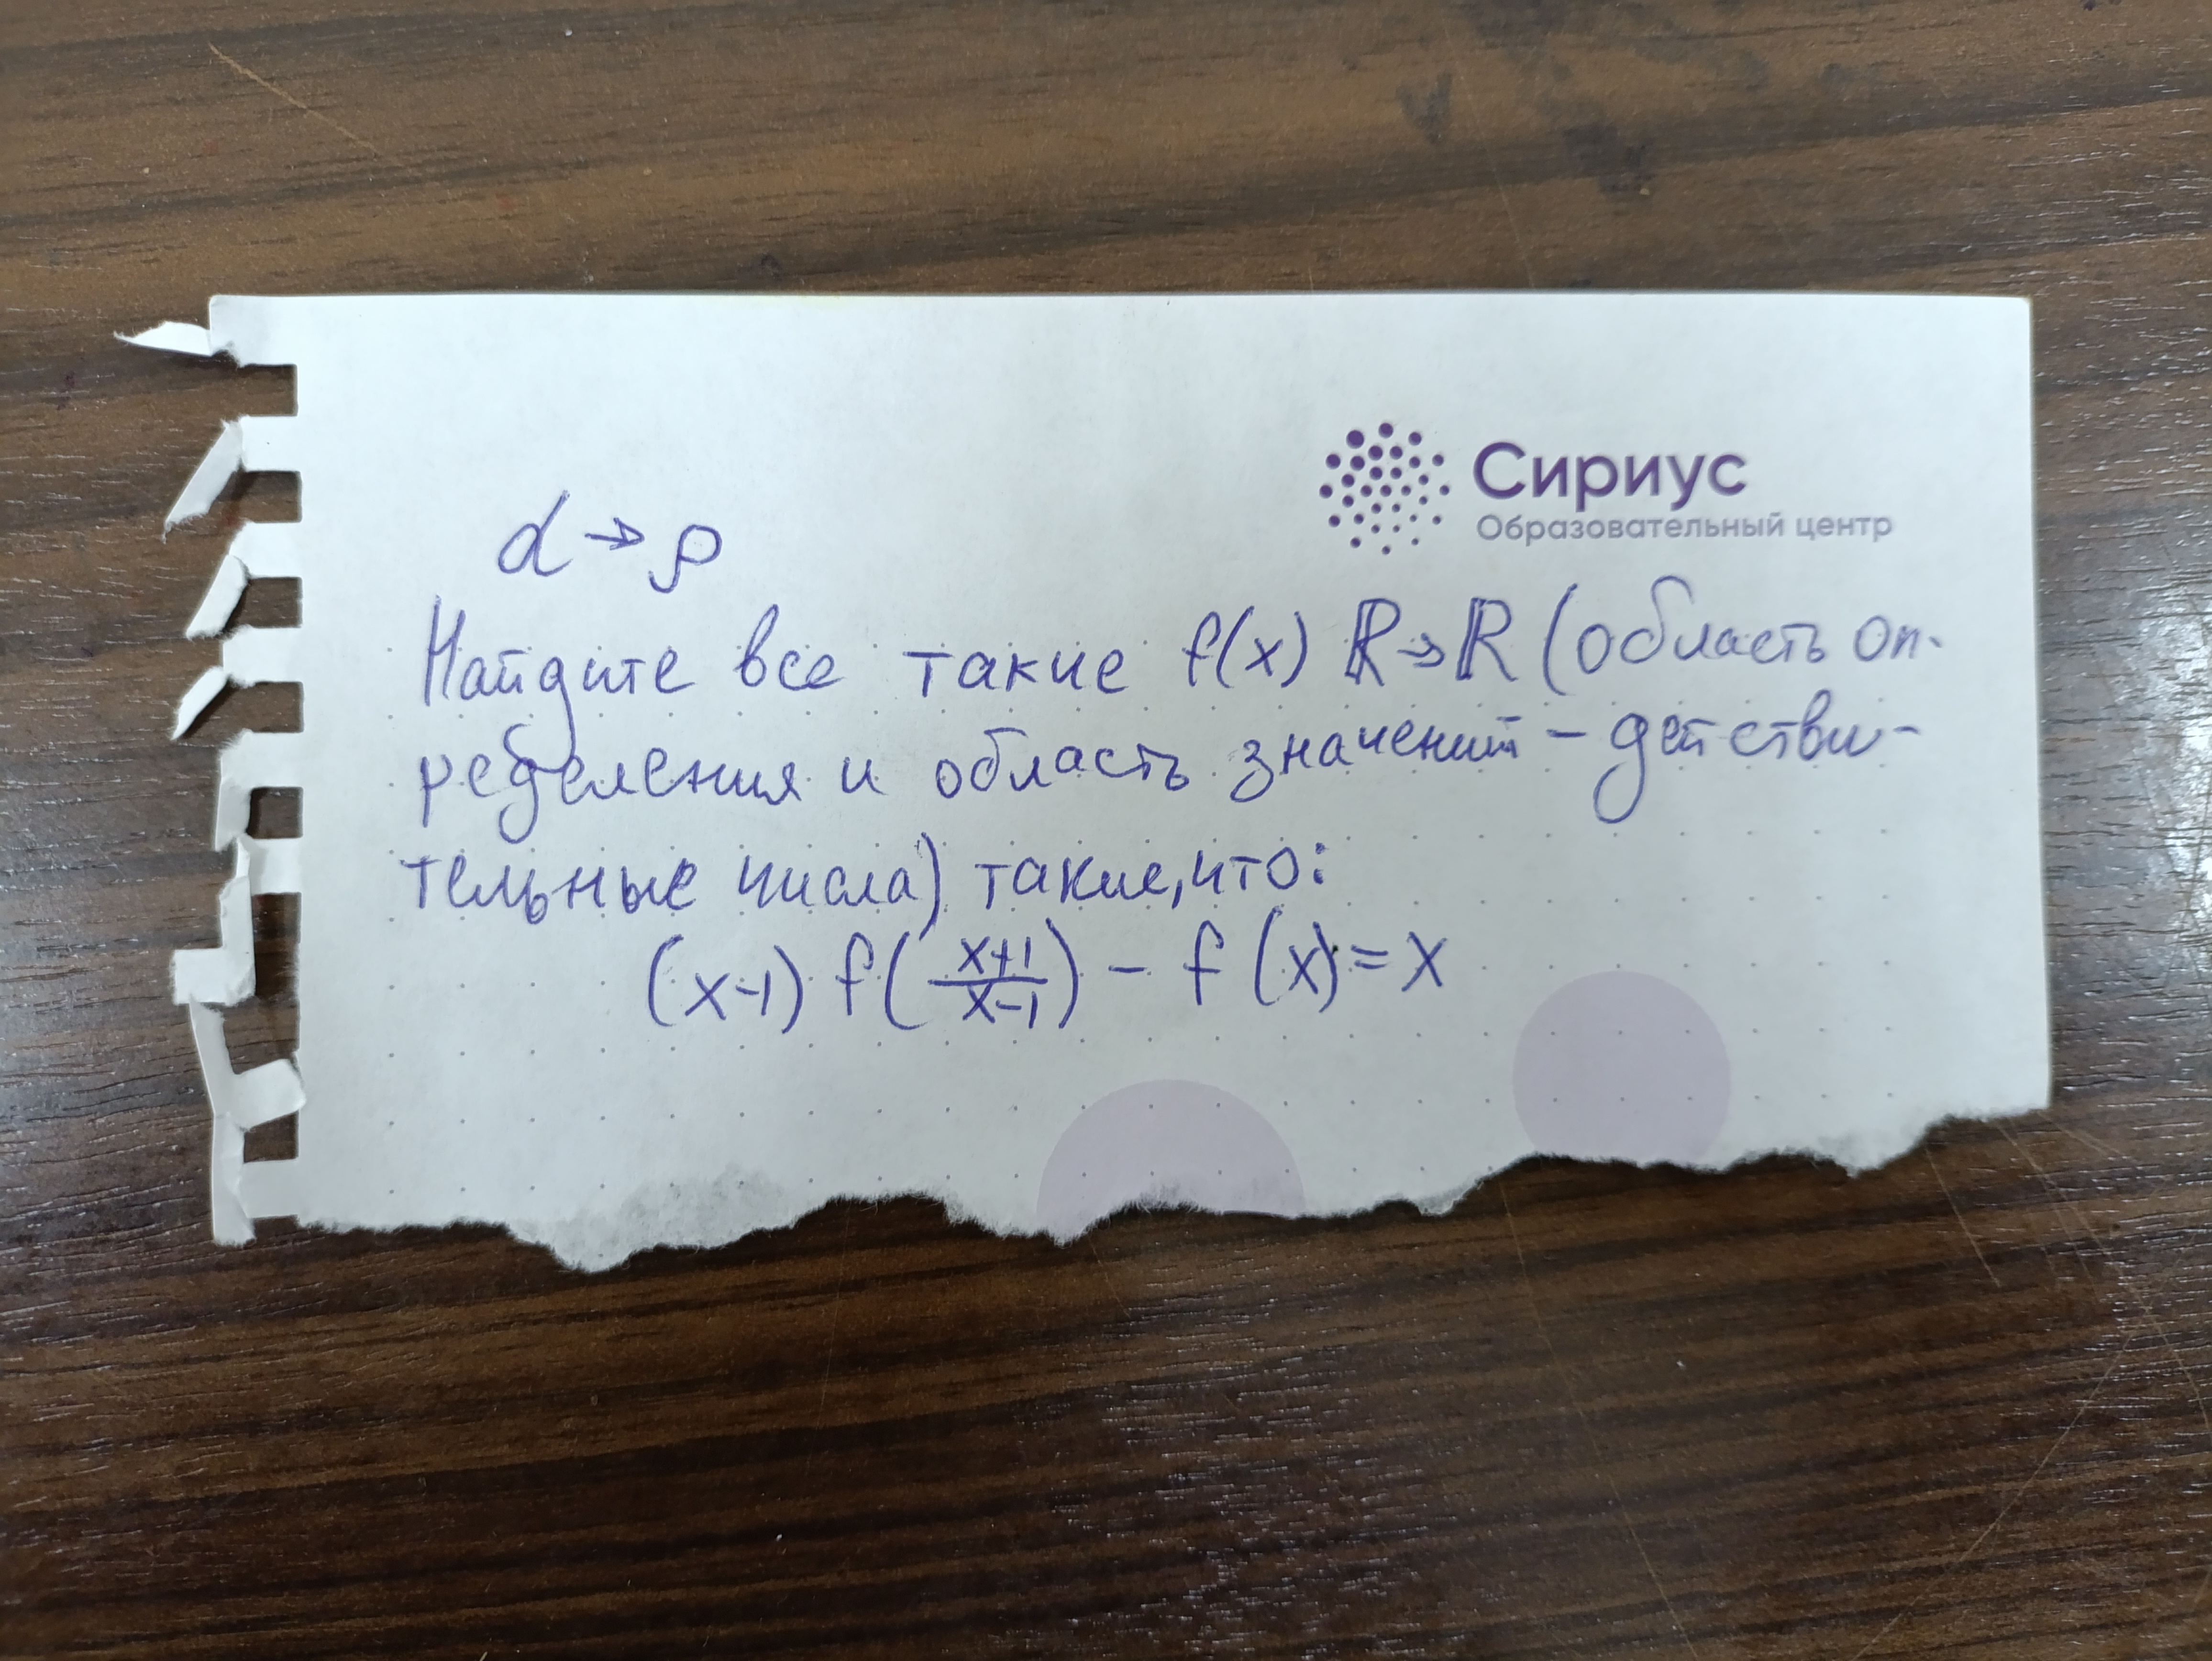 Сириус
Образовательный центр
α → ρ
Найдите все такие f(x) ℝ→ℝ (область оп-
ределения и область значений – действи-
тельные числа) такие, что:
(x-1) f((x+1)/(x-1)) - f(x) = x